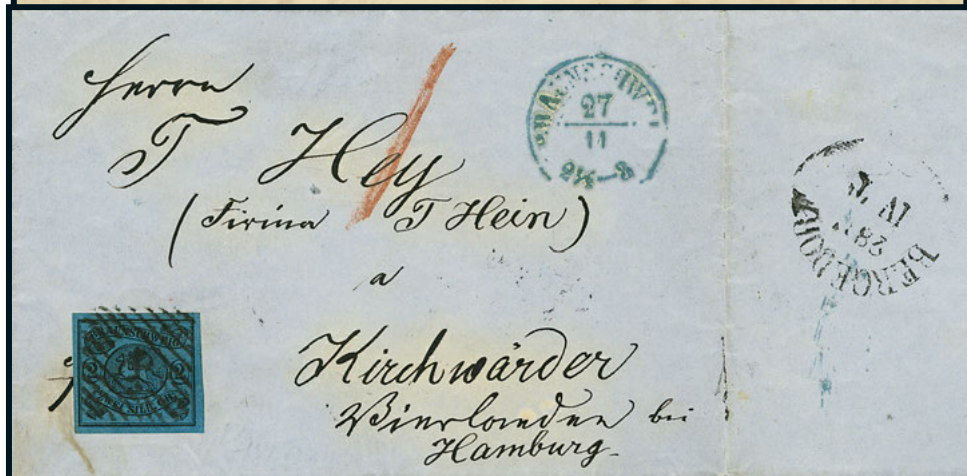 Herrn
T Hey
(Firma T Hein)
a
Kirchwärder
Vierlanden bei
Hamburg.
BRAUNSCHWEIG
27
11
2½-3
BERGEDORF
28
BRAUNSCHWEIG
2 2
ZWEI SILB. GR.